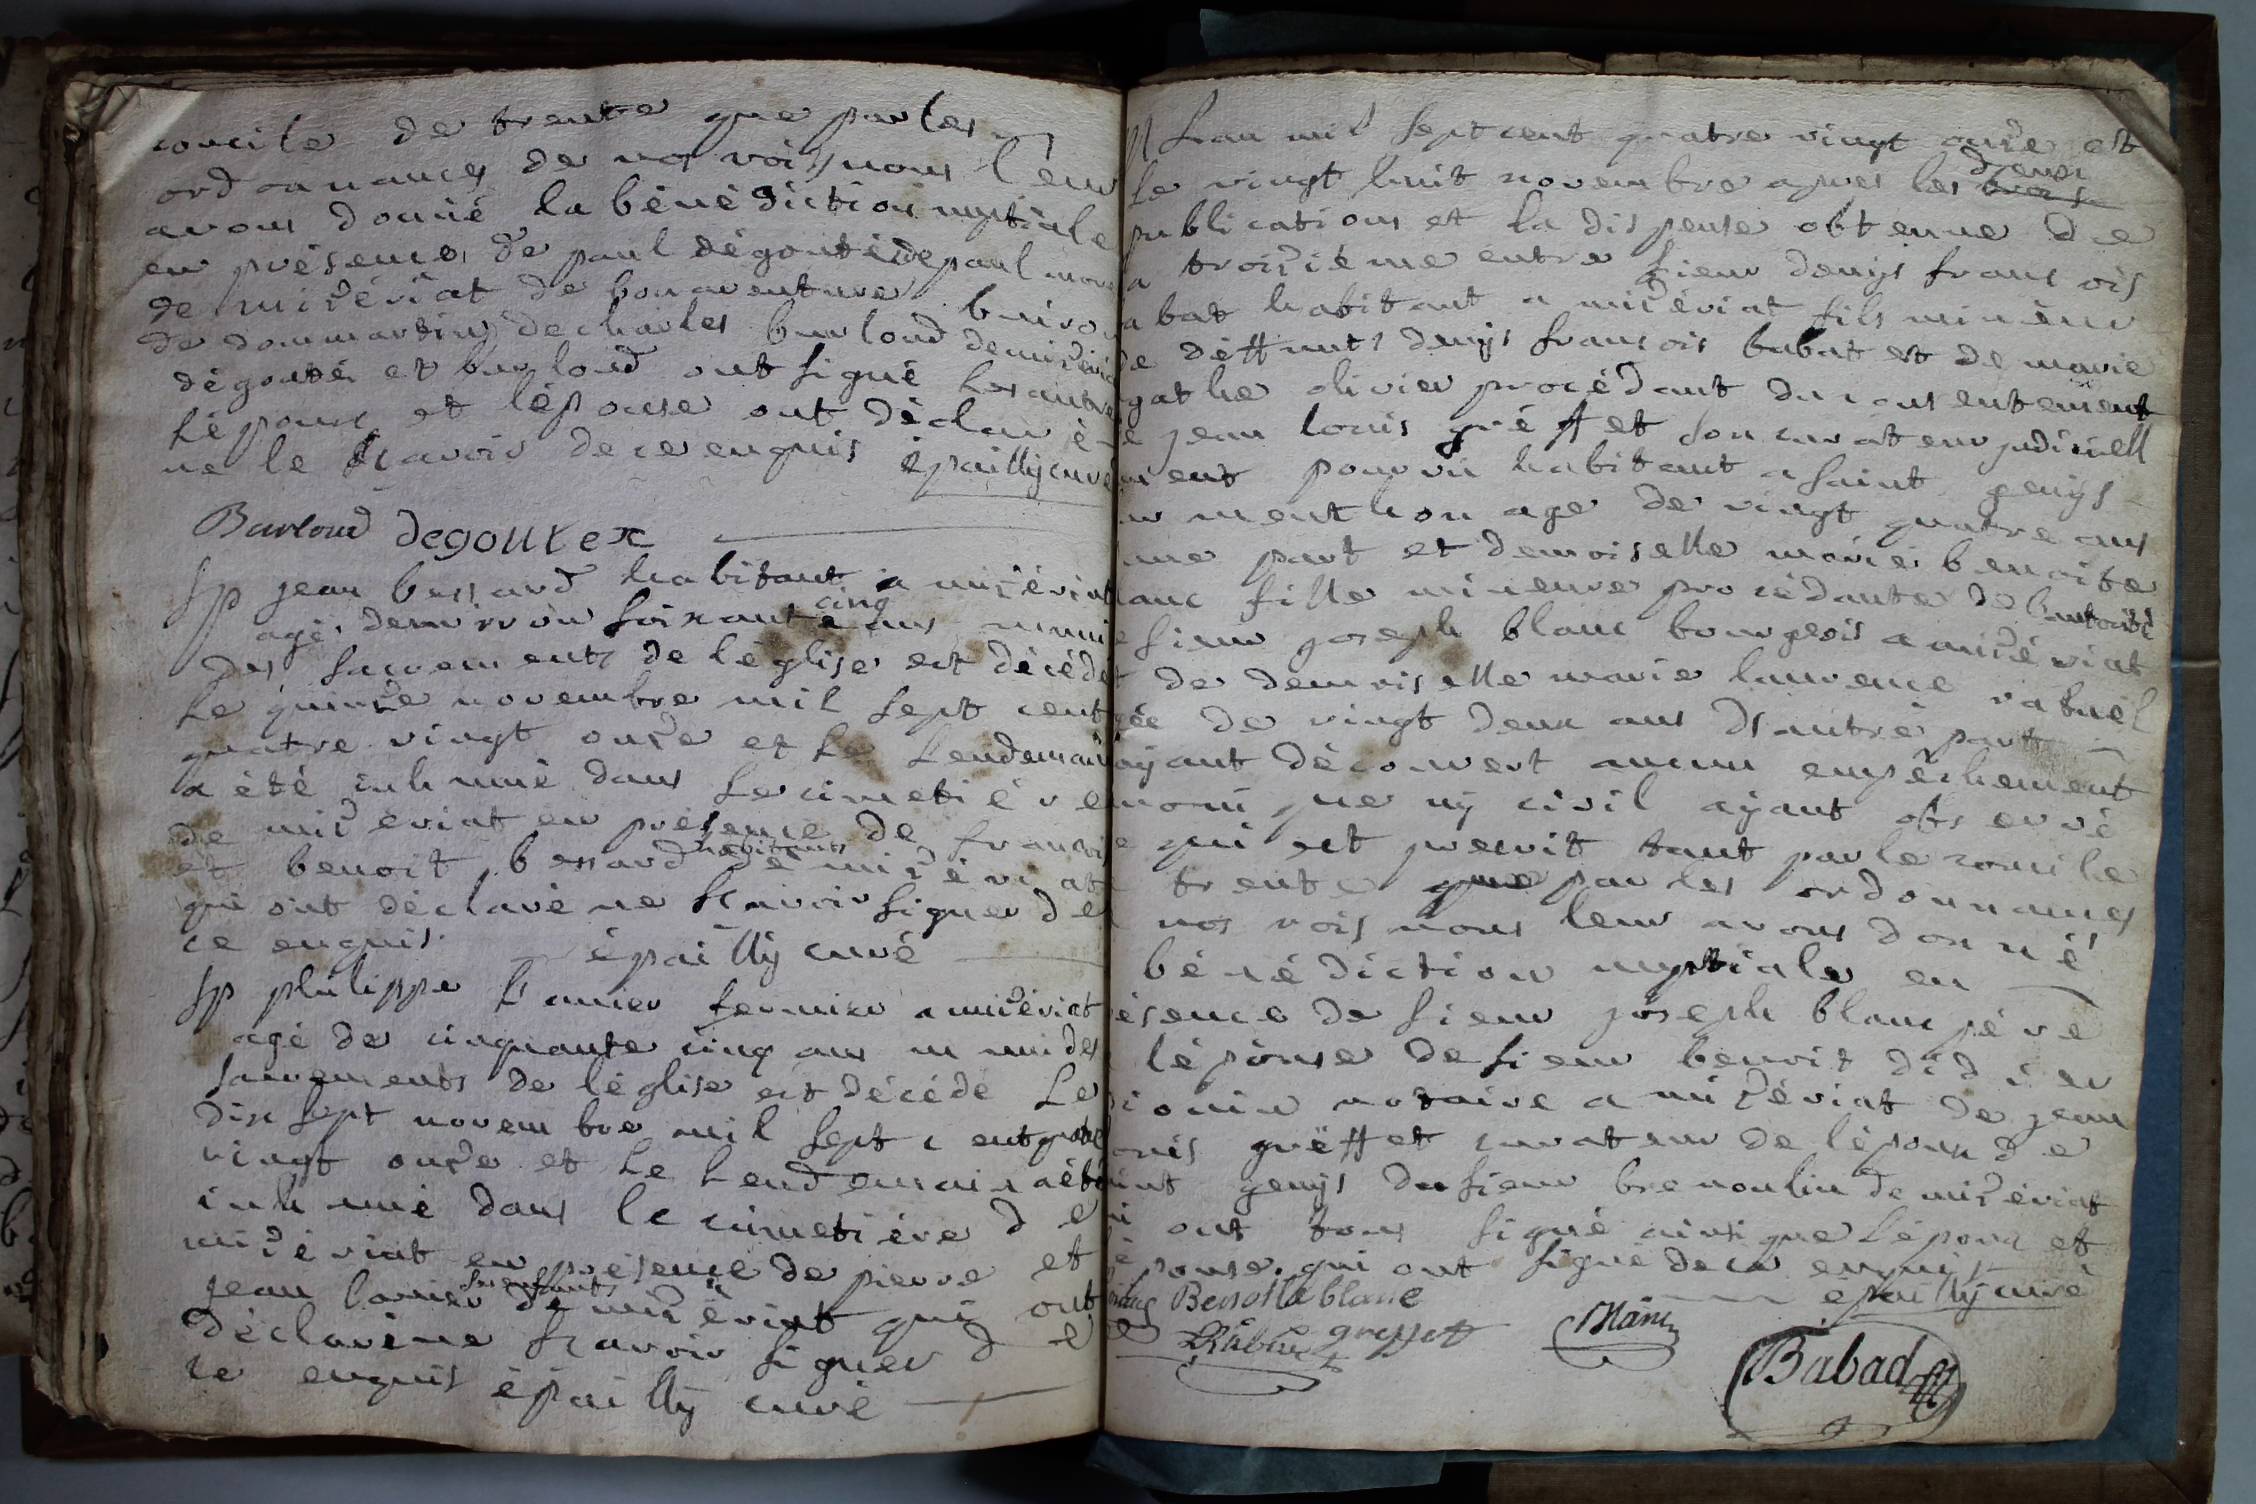 concile de trente que par les
ordonnances de nos rois nous leur
avons donné la bénédiction nuptiale
en présence de paul dégoutéxde paul mon
de misériat de bonaventure buiron
de dommartin de charles burloud demiséria
dégoutéx et burloud ont signé les autre
lépoux et lépouse ont déclaré
ne le scavoir de ce enquis épaillÿ curé
Burloud degoutex
Sp jean bessard habitant a misériat
agé denviron soixante cinq ans muni
des sacrements de léglise est décédé
le quinze novembre mil sept cent
quatre vingt onze et le lendemain
a été inhumé dans le cimetiére
de misériat en présence de francois
et benoit bessard habitants de misériat
qui ont déclaré ne scavoir signer de
ce enquis épaillÿ curé
Sp philippe lanier fermier a misériat
agé de cinquante cinq ans muni des
sacrements de léglise est décédé le
dix sept novembre mil sept cent quatre
vingt onze et le lendemain a été
inhumé dans le cimetiére de
misériat en présence de pierre et
jean lanier ses enfants de misériat qui ont
déclaré ne scavoir signer de
ce enquis épaillÿ curé
Lan mil sept cent quatre vingt onze et
le vingt huit novembre apres les deux
publications et la dispense obtenue de
a troisiéme entre sieur denÿs francois
abat habitant a misériat fils minéur
de déffunts denÿs francois babat et de marie
gathe olivier procédant du consentement
e jean louis gréffet son curateur judiciell
ment pourvu habitant a saint genÿs
ur menthon age de vingt quatre ans
une part et demoiselle marie benoite
lanc fille mineure procédante de lautorité
e sieur joseph blanc bourgeois a misériat
t de demoiselle marie laurence rabuel
gée de vingt deux ans dautre part
aÿant découvert aucun empêchement
nonique nÿ civil aÿant observé
e qui est prescrit tant par le concile
trente que par les ordonnances
nos rois nous leur avons donné
bénédiction nuptiale en
ésence de sieur joseph blanc pére
lépouse de sieur benoit didier
notaire a misériat de jean
ouis grëffet curateur de lépoux de
int genÿs du sieur bremoulin de misériat
ui ont tous signé ainsi que lépoux et
é pouse qui ont signé de ce enquis
épaillÿ curé
Benoite blanc
greffet
Blanc
Babad